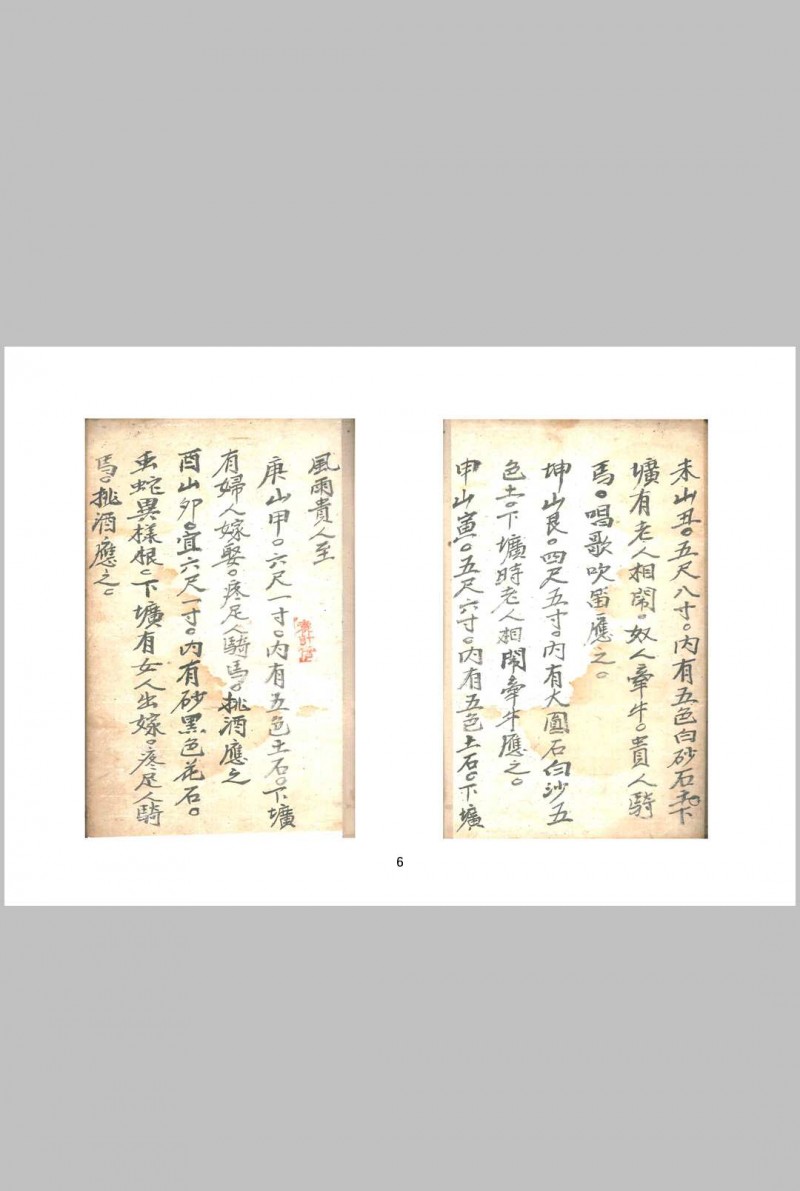 未山丑。五尺八寸。内有五色白砂石。下
壙有老人相鬧。奴人牽牛。貴人騎
馬。唱歌吹笛應之。
坤山艮。四尺五寸。内有大圓石白沙五
色土。下壙時老人相鬧牽牛應之。
申山寅。五尺六寸。内有五色土石。下壙
風雨貴人至
庚山甲。六尺一寸。内有五色土石。下壙
有婦人嫁娶。疼足人騎馬。挑酒應之
酉山卯。宜六尺一寸。内有砂黑色花石。
虫蛇異樣根。下壙有女人出嫁。疼足人騎
馬。挑酒應之。
6